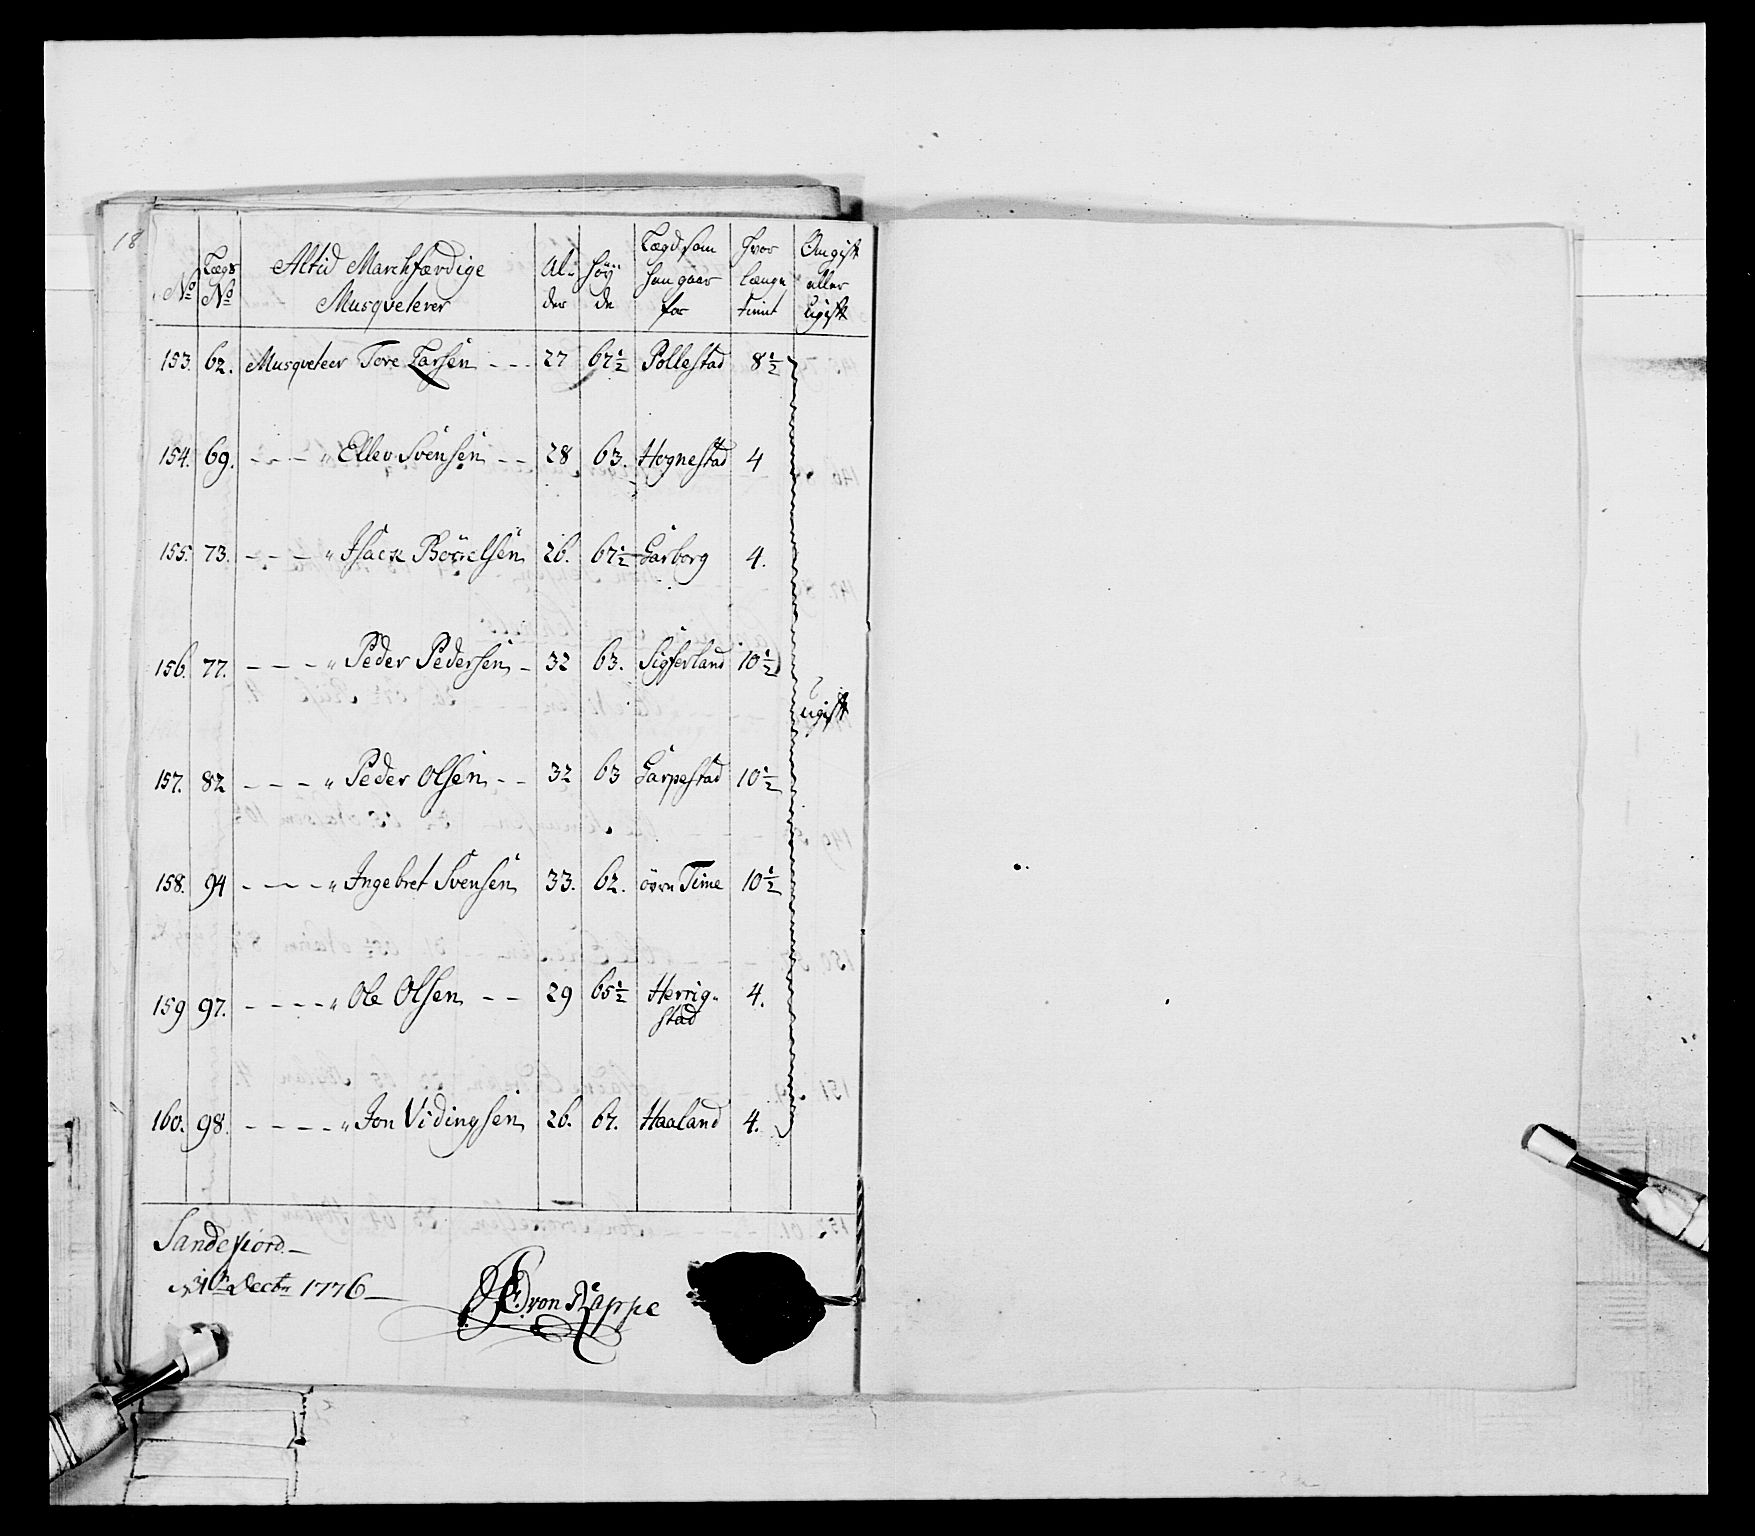 18
No | Lægs No | Altid Marchfærdige Musqueterer | Al- der | Høy- de | Lægd som han gaar for | Hvor længe tient | Omgift eller ugift
153. 62. Musqueteer Tore Larsen - - - 27 67½ Pollestad 8½
154. 69. - - - " Ellev Svensen - - 28 63. Hognestad 4
155. 73. - - - " Isack Börelsen 26. 67½ Garborg 4.
156. 77. - - - " Peder Pedersen - 32 63. Sigferland 10½
ugift
157. 82 - - - " Peder Olsen - - 32 63 Garpestad 10½
158. 94 - - - - " Ingebret Svensen 33. 62. övre Time 10½
159 97. - - - - " Ole Olsen - - 29 65½ Herrig-
stad 4.
160. 98. - - - - " Jon Vidingsen 26. 67. Haaland 4.
Sandefiord
31te Decbr 1776
von Kappe